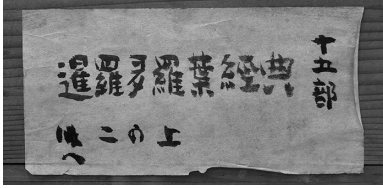 十五部
暹羅多羅葉経典
はこの上